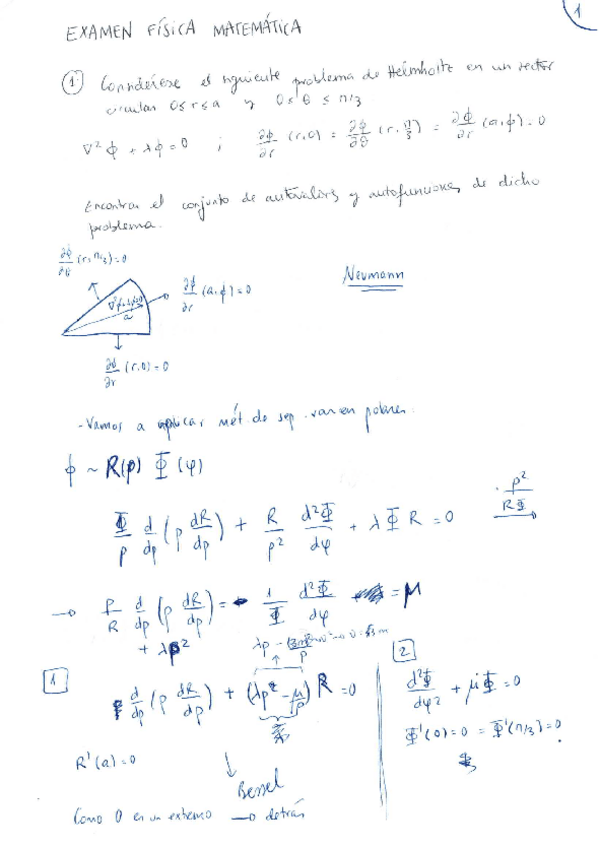 1
EXAMEN FÍSICA MATEMÁTICA
1. Considérese el siguiente problema de Helmholtz en un sector
circular 0≤r≤a y 0≤θ≤π/3
∇²ϕ + λϕ = 0 ; ∂ϕ/∂r (r,0) = ∂ϕ/∂θ (r, π/3) = ∂ϕ/∂r (a,ϕ) = 0
Encontrar el conjunto de autovalores y autofunciones de dicho
problema.
∂ϕ/∂θ (r,π/3)=0
∂ϕ/∂r (a,ϕ)=0
Neumann
a
∂ϕ/∂r (r,0)=0
-Vamos a aplicar mét. de sep. var en polares.
ϕ ~ R(ρ) Φ(φ)
Φ/ρ d/dρ (ρ dR/dρ) + R/ρ² d²Φ/dφ + λΦR = 0 · ρ²/RΦ →
→ ρ/R d/dρ (ρ dR/dρ) = - 1/Φ d²Φ/dφ = μ
+ λρ²
1
d/dρ (ρ dR/dρ) + (λρ - μ/ρ) R = 0
R'(a)=0
Bessel
Como 0 en un extremo → detrás
2
d²Φ/dφ² + μΦ = 0
Φ'(0)=0 = Φ'(π/3)=0